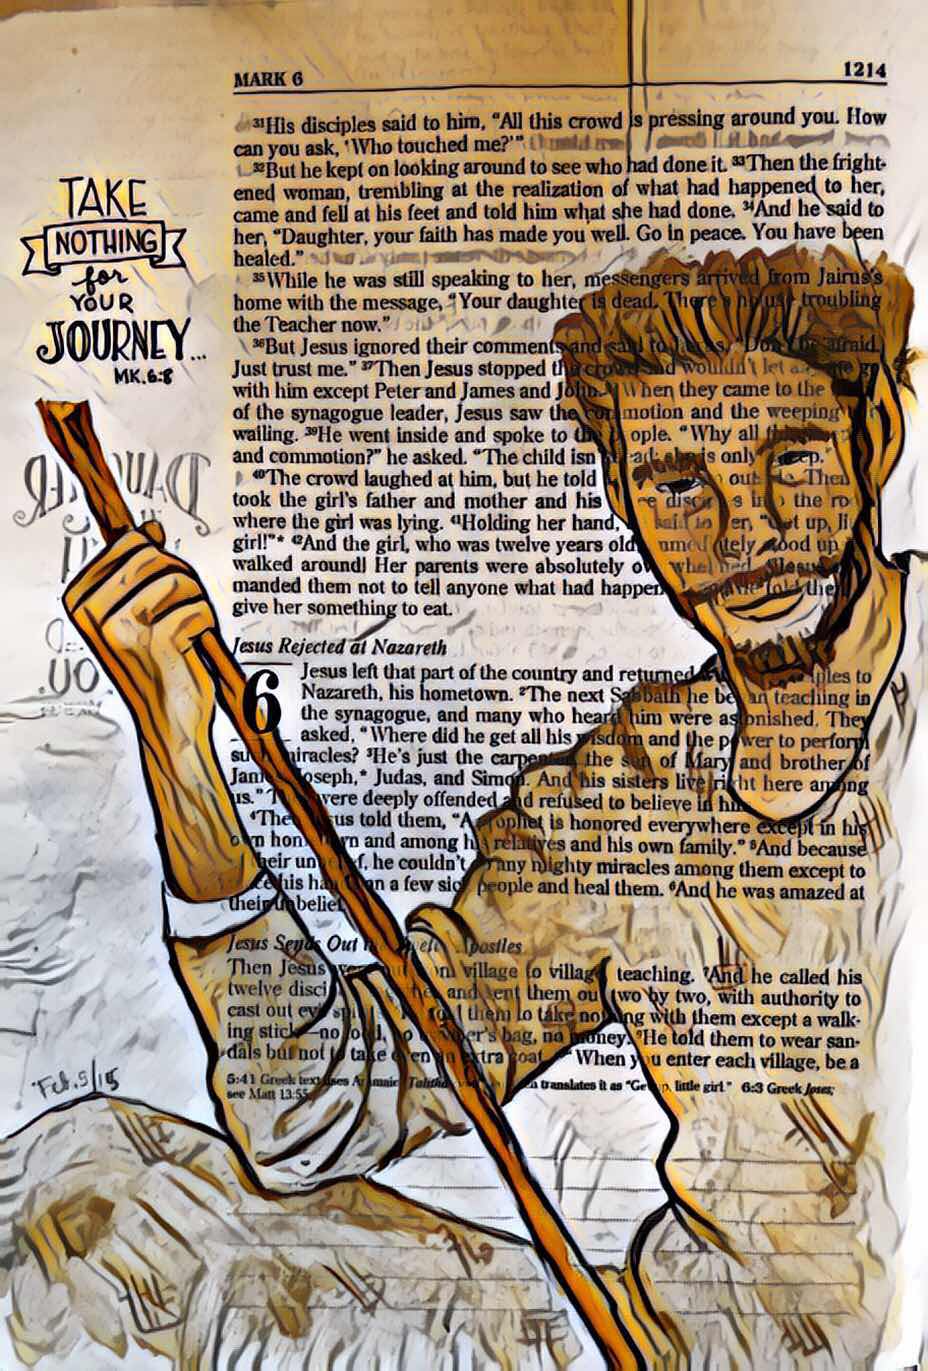 MARK 6
1214
³¹His disciples said to him, “All this crowd is pressing around you. How
can you ask, ‘Who touched me?’”
³²But he kept on looking around to see who had done it. ³³Then the fright-
ened woman, trembling at the realization of what had happened to her,
came and fell at his feet and told him what she had done. ³⁴And he said to
her, “Daughter, your faith has made you well. Go in peace. You have been
healed.”
³⁵While he was still speaking to her, messengers arrived from Jairus's
home with the message, “Your daughter is dead. There's no use troubling
the Teacher now.”
³⁶But Jesus ignored their comments and said to “Don't be afraid.
Just trust me.” ³⁷Then Jesus stopped the crowd and wouldn't let go
with him except Peter and James and John. When they came to the
of the synagogue leader, Jesus saw the commotion and the weeping
wailing. ³⁹He went inside and spoke to the people. “Why all
and commotion?” he asked. “The child isn't dead; she is only asleep.”
⁴⁰The crowd laughed at him, but he told out Then
took the girl's father and mother and his into the
where the girl was lying. ⁴¹Holding her hand, said to her, “Get up,
girl!”* ⁴²And the girl, who was twelve years old, immediately stood up
walked around! Her parents were absolutely Jesus
manded them not to tell anyone what had happened, told them
give her something to eat.
Jesus Rejected at Nazareth
6 Jesus left that part of the country and returned to
Nazareth, his hometown. ²The next Sabbath he began teaching in
the synagogue, and many who heard him were astonished. They
asked, “Where did he get all his wisdom and the power to perform
such miracles? ³He's just the carpenter, the son of Mary and brother of
James, Joseph,* Judas, and Simon. And his sisters live right here among
us.” They were deeply offended and refused to believe in him.
⁴Then Jesus told them, “A prophet is honored everywhere except in his
own hometown and among his relatives and his own family.” ⁵And because
of their unbelief, he couldn't do any mighty miracles among them except to
place his hands on a few sick people and heal them. ⁶And he was amazed at
their unbelief.
Jesus Sends Out the Twelve Apostles
Then Jesus went out from village to village, teaching. ⁷And he called his
twelve disciples and sent them out two by two, with authority to
cast out evil spirits. ⁸He told them to take nothing with them except a walk-
ing stick—no food, no traveler's bag, no money. ⁹He told them to wear san-
dals but not to take even an extra coat. “When you enter each village, be a
5:41 Greek text uses Aramaic Talitha translates it as “Get up, little girl.” 6:3 Greek Joses;
see Matt 13:55.
TAKE
NOTHING
for
YOUR
JOURNEY...
MK.6:8
Feb.5/15